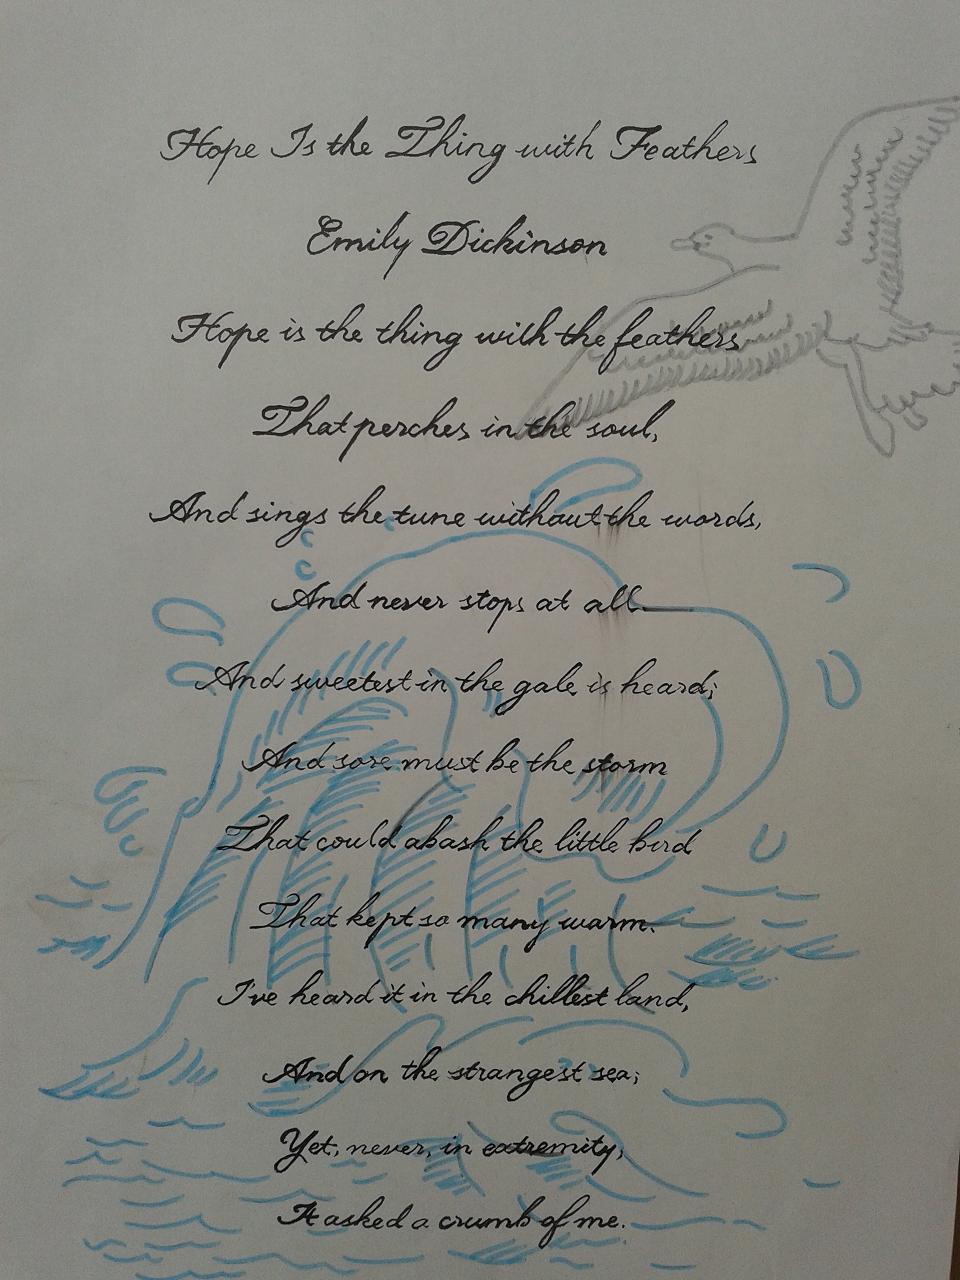 Hope Is the Thing with Feathers
Emily Dickinson
Hope is the thing with the feathers
That perches in the soul,
And sings the tune without the words,
And never stops at all
And sweetest in the gale is heard;
And sore must be the storm
That could abash the little bird
That kept so many warm.
I've heard it in the chillest land,
And on the strangest sea;
Yet, never, in extremity,
It asked a crumb of me.